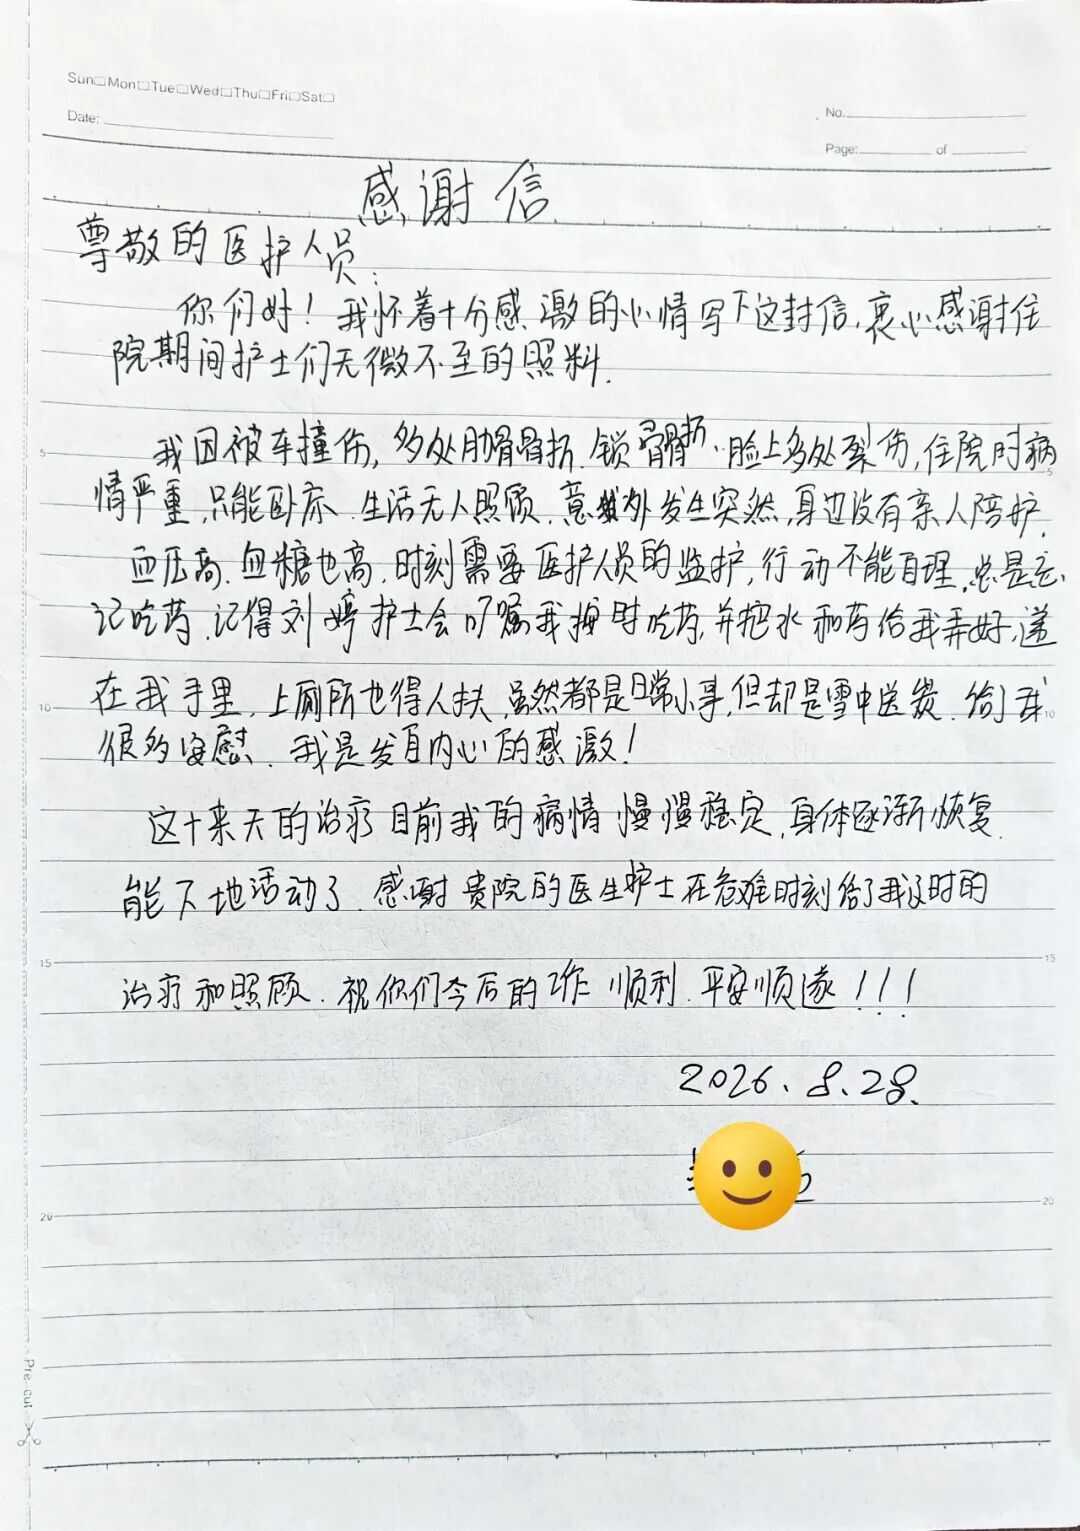 Sun□Mon□Tue□Wed□Thu□Fri□Sat□
Date:
No.
Page: of
感谢信
尊敬的医护人员:
你们好!我怀着十分感激的心情写下这封信,衷心感谢住
院期间护士们无微不至的照料.
我因被车撞伤,多处肋骨骨折.锁骨骨折、脸上多处裂伤,住院时病
情严重,只能卧床.生活无人照顾,意外发生突然,身边没有亲人陪护.
血压高.血糖也高.时刻需要医护人员的监护,行动不能自理.总是忘
记吃药.记得刘婷护士会叮嘱我按时吃药,并把水和药给我弄好,递
在我手里,上厕所也得人扶.虽然都是日常小事,但却是雪中送炭.给了我
很多安慰.我是发自内心的感激!
这十来天的治疗目前我的病情慢慢稳定,身体逐渐恢复.
能下地活动了.感谢贵院的医生护士在危难时刻给了我及时的
治疗和照顾.祝你们今后的工作顺利.平安顺遂!!!
2026.8.28.
5
10
15
20
5
10
15
20
Pre-cut